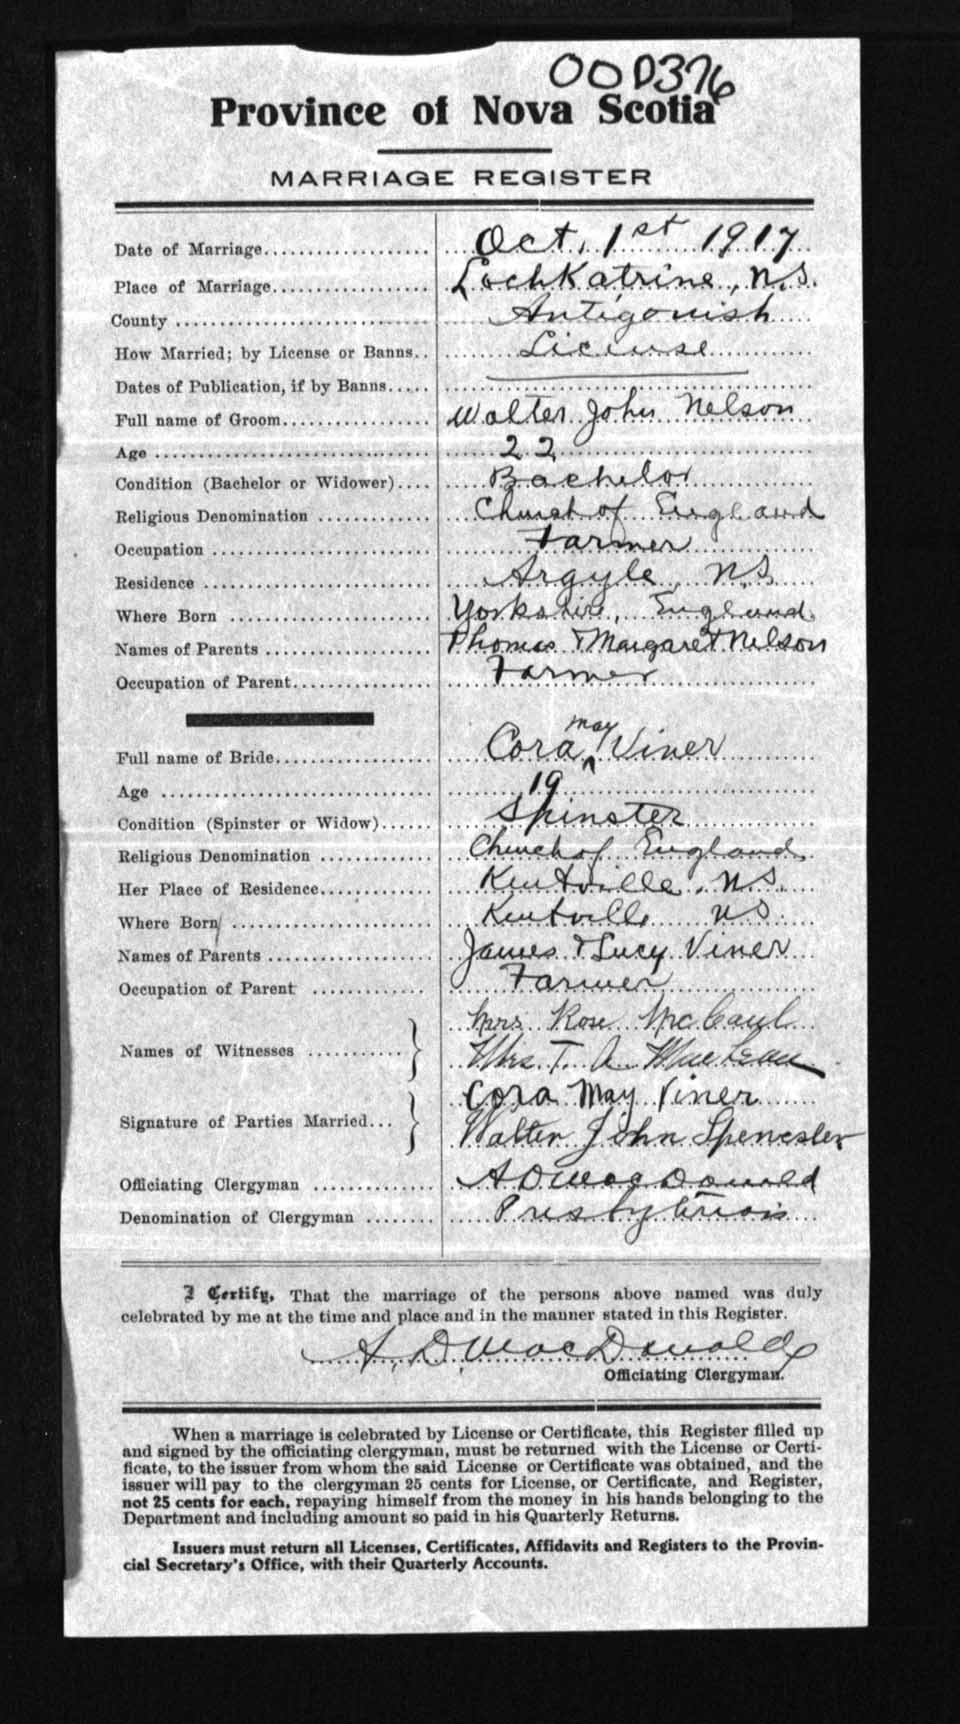 000376
Province of Nova Scotia
MARRIAGE REGISTER
Date of Marriage Oct. 1st 1917
Place of Marriage Loch Katrine, N.S.
County Antigonish
How Married; by License or Banns License
Dates of Publication, if by Banns
Full name of Groom Walter John Nelson
Age 22
Condition (Bachelor or Widower) Bachelor
Religious Denomination Church of England
Occupation Farmer
Residence Argyle, N.S.
Where Born Yorkshire, England.
Names of Parents Thomas & Margaret Nelson
Occupation of Parent Farmer
Full name of Bride Cora May Viner
Age 19
Condition (Spinster or Widow) Spinster
Religious Denomination Church of England
Her Place of Residence Kentville, N.S.
Where Born Kentville N.S.
Names of Parents James & Lucy Viner
Occupation of Parent Farmer
Names of Witnesses Mrs Rose McCaul
Mrs. T. A. MacLean
Signature of Parties Married Cora May Viner
Walter John
Officiating Clergyman A D MacDonald
Denomination of Clergyman Presbyterian
I Certify, That the marriage of the persons above named was duly
celebrated by me at the time and place and in the manner stated in this Register.
A. D. MacDonald
Officiating Clergyman.
When a marriage is celebrated by License or Certificate, this Register filled up
and signed by the officiating clergyman, must be returned with the License or Certi-
ficate, to the issuer from whom the said License or Certificate was obtained, and the
issuer will pay to the clergyman 25 cents for License, or Certificate, and Register,
not 25 cents for each, repaying himself from the money in his hands belonging to the
Department and including amount so paid in his Quarterly Returns.
Issuers must return all Licenses, Certificates, Affidavits and Registers to the Provin-
cial Secretary's Office, with their Quarterly Accounts.